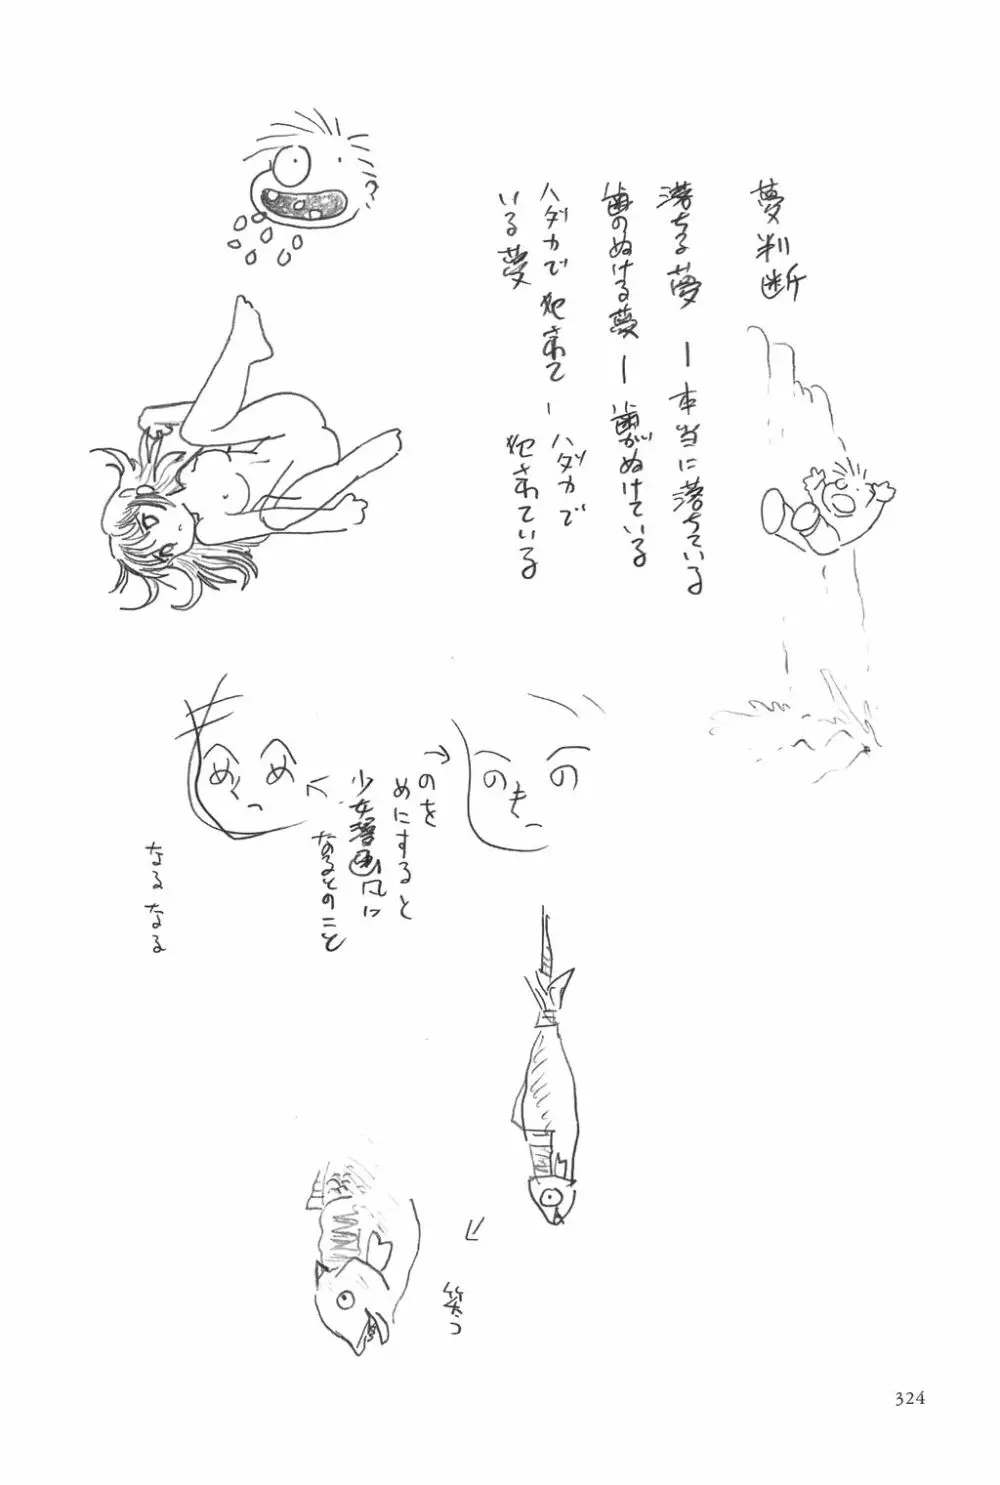 夢判断
落ちる夢 ー 本当に落ちている
歯のぬける夢 ー 歯がぬけている
ハダカで犯されて ー ハダカで
いる夢
犯されている
の の
も
へ
→
のを
めにすると
少女漫画風に
なるとのこと
め め
く
なるなる
笑う
324